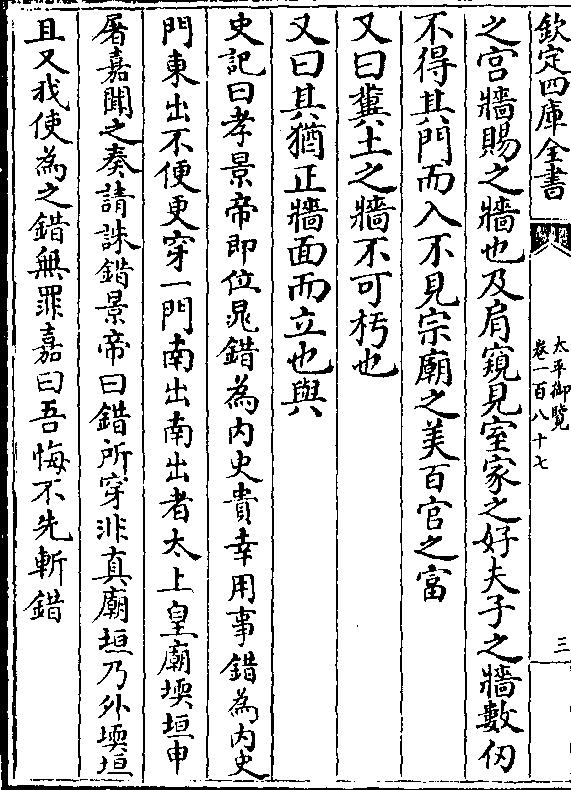 欽定四庫全書
太平御覽
卷一百八十七
三
之宫牆賜之牆也及肩窺見室家之好夫子之牆數仞
不得其門而入不見宗廟之美百官之富
又曰糞土之牆不可杇也
又曰其猶正牆面而立也與
史記曰孝景帝即位晁錯為内史貴幸用事錯為内史
門東出不便更穿一門南出南出者太上皇廟堧垣申
屠嘉聞之奏請誅錯景帝曰錯所穿非真廟垣乃外堧垣
且又我使為之錯無罪嘉曰吾悔不先斬錯